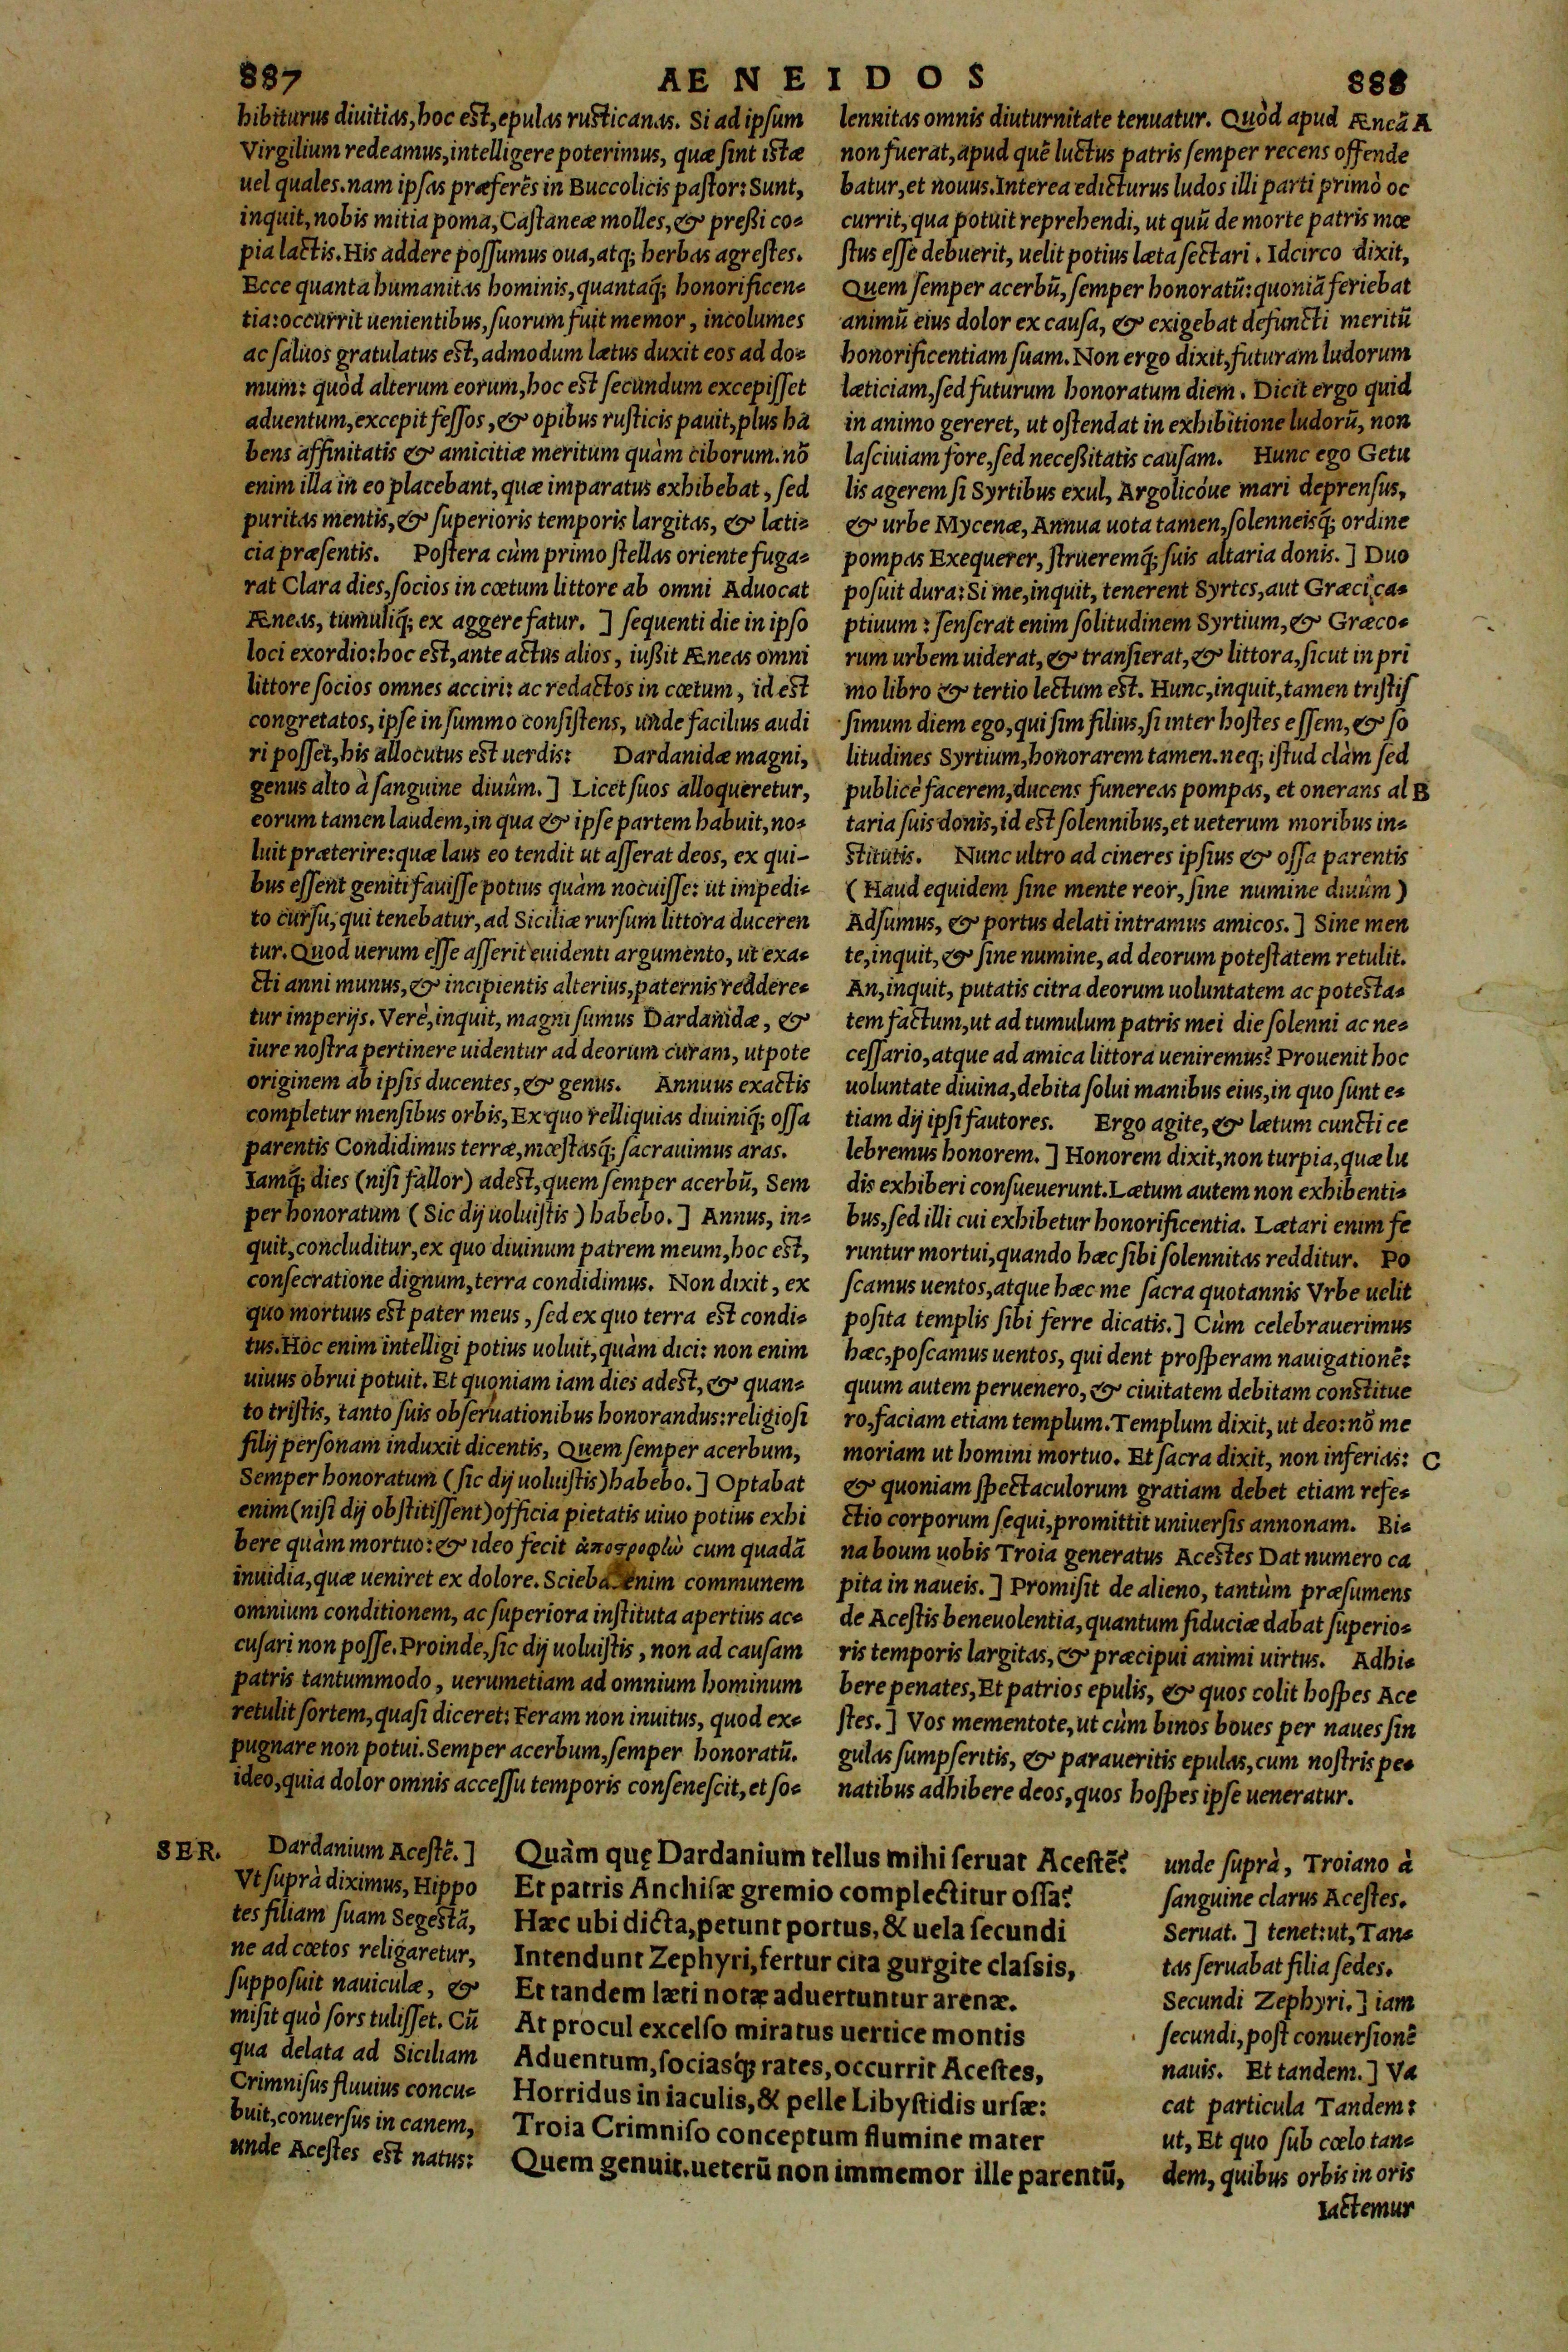 887
AENEIDOS
888
hibiturus diuitias, hoc est, epulas rusticanas. Si ad ipsum
Virgilium redeamus, intelligere poterimus, quæ sint istæ
uel quales. nam ipsas præferẽs in Buccolicis pastor: Sunt,
inquit, nobis mitia poma, Castaneæ molles, & preßi co-
pia lactis. His addere possumus oua, atq; herbas agrestes.
Ecce quanta humanitas hominis, quantaq́; honorificen-
tia: occurrit uenientibus, suorum fuit memor, incolumes
ac saluos gratulatus est, admodum lætus duxit eos ad do-
mum: quòd alterum eorum, hoc est secundum excepisset
aduentum, excepit fessos, & opibus rusticis pauit, plus ha
bens affinitatis & amicitiæ meritum quàm ciborum. nõ
enim illa in eo placebant, quæ imparatus exhibebat, sed
puritas mentis, & superioris temporis largitas, & læti-
cia præsentis. Postera cùm primo stellas oriente fuga-
rat Clara dies, socios in cœtum littore ab omni Aduocat
Æneas, tumuliq́; ex aggere fatur. ] sequenti die in ipso
loci exordio: hoc est, ante actus alios, iußit Æneas omni
littore socios omnes acciri: ac redactos in cœtum, id est
congretatos, ipse in summo consistens, unde facilius audi
ri posset, his allocutus est uerdis: Dardanidæ magni,
genus alto à sanguine diuûm. ] Licet suos alloqueretur,
eorum tamen laudem, in qua & ipse partem habuit, no-
luit præterire: quæ laus eo tendit ut asserat deos, ex qui-
bus essent geniti fauisse potius quàm nocuisse: ut impedi-
to cursu, qui tenebatur, ad Siciliæ rursum littora duceren
tur. Quod uerum esse asserit euidenti argumento, ut exa-
cti anni munus, & incipientis alterius, paternis reddere-
tur imperijs. Verè, inquit, magni sumus Dardanidæ, &
iure nostra pertinere uidentur ad deorum curam, utpote
originem ab ipsis ducentes, & genus. Annuus exactis
completur mensibus orbis, Ex quo relliquias diuiniq́; ossa
parentis Condidimus terræ, mœstasq́; sacrauimus aras.
Iamq́; dies (nisi fallor) adest, quem semper acerbũ, Sem
per honoratum ( Sic dij uoluistis ) habebo. ] Annus, in-
quit, concluditur, ex quo diuinum patrem meum, hoc est,
consecratione dignum, terra condidimus. Non dixit, ex
quo mortuus est pater meus, sed ex quo terra est condi-
tus. Hoc enim intelligi potius uoluit, quàm dici: non enim
uiuus obrui potuit. Et quoniam iam dies adest, & quan-
to tristis, tanto suis obseruationibus honorandus: religiosi
filij personam induxit dicentis, Quem semper acerbum,
Semper honoratum ( sic dij uoluistis) habebo. ] Optabat
enim (nisi dij obstitissent) officia pietatis uiuo potius exhi
bere quàm mortuo: & ideo fecit ἀποστροφὼ cum quadã
inuidia, quæ ueniret ex dolore. Scieba enim communem
omnium conditionem, ac superiora instituta apertius ac-
cusari non posse. Proinde, sic dij uoluistis, non ad causam
patris tantummodo, uerumetiam ad omnium hominum
retulit sortem, quasi diceret: Feram non inuitus, quod ex-
pugnare non potui. Semper acerbum, semper honoratũ.
ideo, quia dolor omnis accessu temporis consenescit, et so-
lennitas omnis diuturnitate tenuatur. Quòd apud Æneã A
non fuerat, apud quẽ luctus patris semper recens offende
batur, et nouus. Interea edicturus ludos illi parti primò oc
currit, qua potuit reprehendi, ut quũ de morte patris mœ
stus esse debuerit, uelit potius læta sectari. Idcirco dixit,
Quem semper acerbũ, semper honoratũ: quoniã feriebat
animũ eius dolor ex causa, & exigebat defuncti meritũ
honorificentiam suam. Non ergo dixit, futuram ludorum
læticiam, sed futurum honoratum diem. Dicit ergo quid
in animo gereret, ut ostendat in exhibitione ludorũ, non
lasciuiam fore, sed neceßitatis causam. Hunc ego Getu
lis agerem si Syrtibus exul, Argolicóue mari deprensus,
& urbe Mycenæ, Annua uota tamen, solenneisq́; ordine
pompas Exequerer, strueremq́; suis altaria donis. ] Duo
posuit dura: Si me, inquit, tenerent Syrtes, aut Græci ca-
ptiuum: senserat enim solitudinem Syrtium, & Græco-
rum urbem uiderat, & transierat, & littora, sicut in pri
mo libro & tertio lectum est. Hunc, inquit, tamen tristis
simum diem ego, qui sim filius, si inter hostes essem, & so
litudines Syrtium, honorarem tamen. neq; istud clàm sed
publicè facerem, ducens funereas pompas, et onerans al B
taria suis donis, id est solennibus, et ueterum moribus in-
stitutis. Nunc ultro ad cineres ipsius & ossa parentis
( Haud equidem sine mente reor, sine numine diuûm )
Adsumus, & portus delati intramus amicos. ] Sine men
te, inquit, & sine numine, ad deorum potestatem retulit.
An, inquit, putatis citra deorum uoluntatem ac potesta-
tem factum, ut ad tumulum patris mei die solenni ac ne-
cessario, atque ad amica littora ueniremus? Prouenit hoc
uoluntate diuina, debita solui manibus eius, in quo sunt e-
tiam dij ipsi fautores. Ergo agite, & lætum cuncti ce
lebremus honorem. ] Honorem dixit, non turpia, quæ lu
dis exhiberi consueuerunt. Lætum autem non exhibenti-
bus, sed illi cui exhibetur honorificentia. Lætari enim fe
runtur mortui, quando hæc sibi solennitas redditur. Po
scamus uentos, atque hæc me sacra quotannis Vrbe uelit
posita templis sibi ferre dicatis. ] Cùm celebrauerimus
hæc, poscamus uentos, qui dent prosperam nauigationẽ:
quum autem peruenero, & ciuitatem debitam constitue
ro, faciam etiam templum. Templum dixit, ut deo: nõ me
moriam ut homini mortuo. Et sacra dixit, non inferias: C
& quoniam spectaculorum gratiam debet etiam refe-
ctio corporum sequi, promittit uniuersis annonam. Bi-
na boum uobis Troia generatus Acestes Dat numero ca
pita in naueis. ] Promisit de alieno, tantùm præsumens
de Acestis beneuolentia, quantum fiduciæ dabat superio-
ris temporis largitas, & præcipui animi uirtus. Adhi-
bere penates, Et patrios epulis, & quos colit hospes Ace
stes. ] Vos mementote, ut cùm binos boues per naues sin
gulas sumpseritis, & paraueritis epulas, cum nostris pe-
natibus adhibere deos, quos hospes ipse ueneratur.
SER. Dardanium Acestẽ. ]
Vt suprà diximus, Hippo
tes filiam suam Segestã,
ne ad cœtos religaretur,
supposuit nauiculæ, &
misit quò sors tulisset. Cũ
qua delata ad Siciliam
Crimnisus fluuius concu-
buit, conuersus in canem,
unde Acestes est natus:
Quàm quę Dardanium tellus mihi seruat Acestẽ?
Et patris Anchisæ gremio complectitur ossa?
Hæc ubi dicta, petunt portus, & uela secundi
Intendunt Zephyri, fertur cita gurgite classis,
Et tandem læti notæ aduertuntur arenæ.
At procul excelso miratus uertice montis
Aduentum, sociasq́; rates, occurrit Acestes,
Horridus in iaculis, & pelle Libystidis ursæ:
Troia Crimniso conceptum flumine mater
Quem genuit. ueterũ non immemor ille parentũ,
unde suprà, Troiano à
sanguine clarus Acestes.
Seruat. ] tenet: ut, Tan-
tas seruabat filia sedes.
Secundi Zephyri. ] iam
secundi, post conuersionẽ
nauis. Et tandem. ] Va
cat particula Tandem:
ut, Et quo sub cœlo tan-
dem, quibus orbis in oris
Iactemur